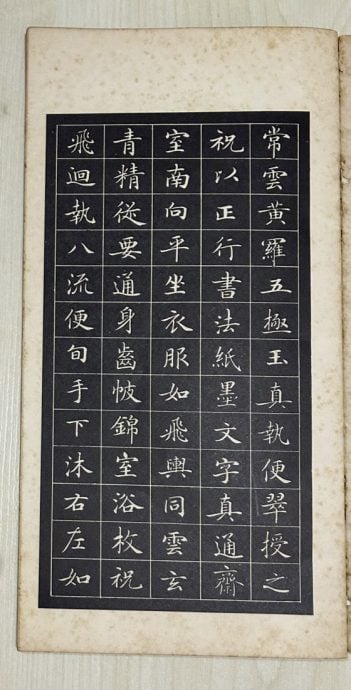 常雲黃羅五極玉真執便翠授之
祝以正行書法紙墨文字真通齋
室南向平坐衣服如飛輿同雲玄
青精從要通身齒帔錦室浴枚祝
飛迴執八流便旬手下沐右左如